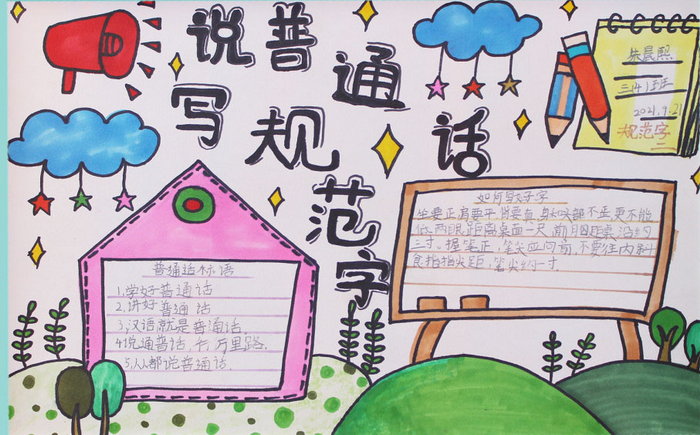 说普通话
写规范字
朱晨熙
三(4)班
2021.9.21
规范字
普通话标语
1.学好普通话
2.讲好普通话
3.汉语就是普通话
4.说通普话,行万里路.
5.人人都说普通话.
如何写好字
坐要正,肩要平,背要直,身
低,两眼距离桌面一尺,
三寸.握笔正,笔尖应向前,不要往内斜
食拇指尖距,笔尖约一寸.